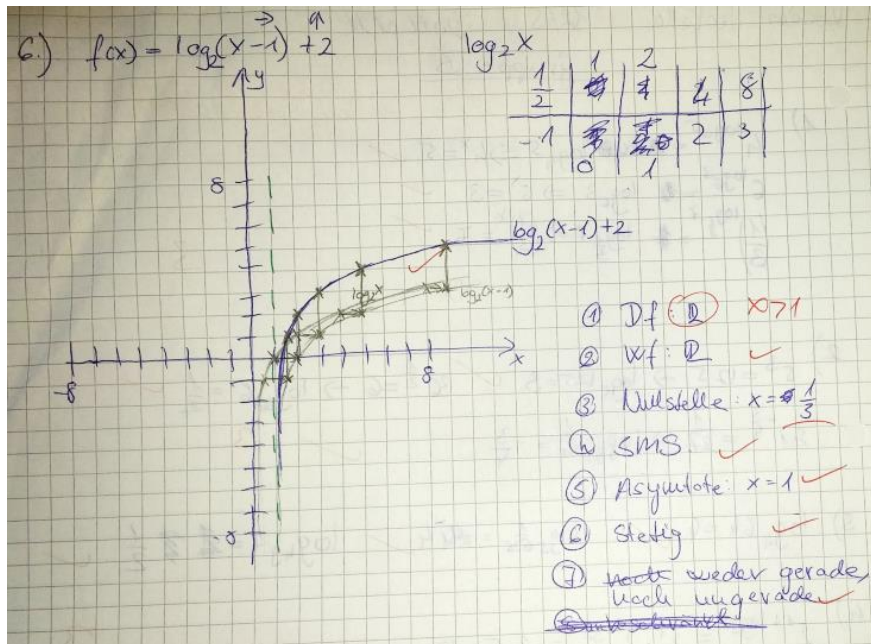 6.) f(x) = log₂(x-1) +2
log₂x
1 2
1/2 4 8
-1 2 3
0 1
y
8
log₂(x-1)+2
log₂x
log₂(x-1)
x
-8 8
-8
① Df: ℝ x>1
② Wf: ℝ ✓
③ Nullstelle: x = 1/3
④ SMS. ✓
⑤ Asymtote: x=1 ✓
⑥ Stetig ✓
⑦ weder gerade,
noch ungerade ✓